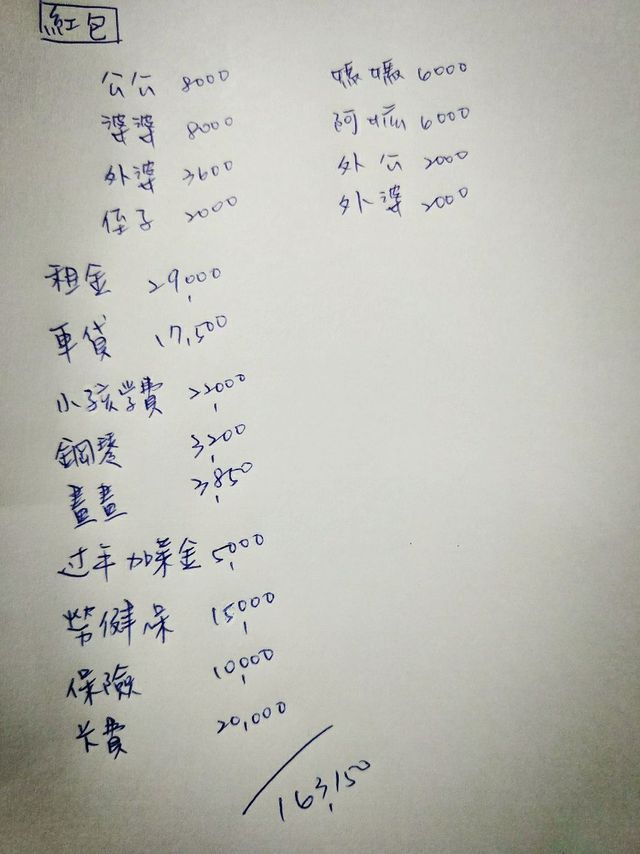 紅包
公公 8000 媽媽 6000
婆婆 8000 6000
外婆 3600 外公 2000
侄子 2000 外婆 2000
租金 29,000
車貸 17,500
小孩学費 22,000
鋼琴 3,200
畫畫 3,850
过年加菜金 5,000
勞健保 15,000
保險 10,000
卡費 20,000
163,150